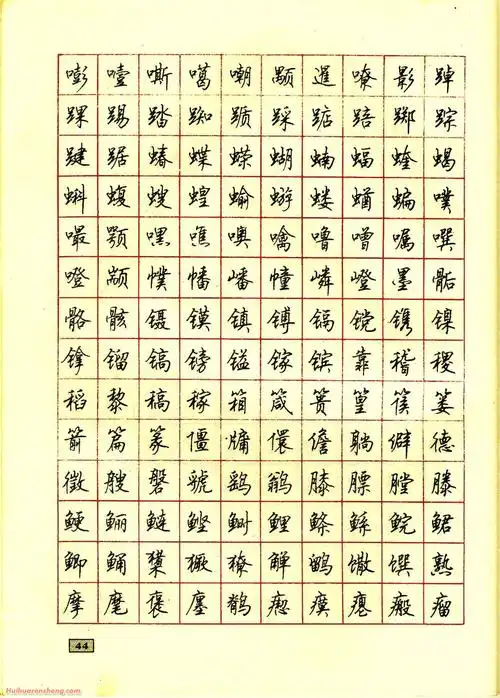 嘭 噎 嘶 噶 嘲 颙 暹 嘹 影 踔
踝 踢 踏 踟 踬 踩 踮 踣 踯 踪
踺 踞 蝽 蝶 蝾 蝴 蝻 蝠 蝰 蝎
蝌 蝮 螋 蝗 蝓 蝣 蝼 蝤 蝙 噗
嘬 颚 嘿 噍 噢 噙 噜 噌 嘱 噀
噔 颛 幞 幡 嶓 幢 嶙 嶝 墨 骺
骼 骸 镊 镆 镇 镈 镉 镋 镌 镍
镎 镏 镐 镑 镒 镓 镔 靠 稽 稷
稻 黎 稿 稼 箱 箴 篑 篁 篌 篓
箭 篇 篆 僵 牖 儇 儋 躺 僻 德
徵 艘 磐 虢 鹞 鹟 膝 膘 膛 滕
鲠 鲡 鲢 鲣 鲥 鲤 鲦 鲧 鲩 鲪
鲫 鲬 橥 獗 獠 觯 鹠 馓 馔 熟
摩 麾 褒 廛 鹡 瘛 瘼 瘪 瘢 瘤
44
Huihuarensheng.com